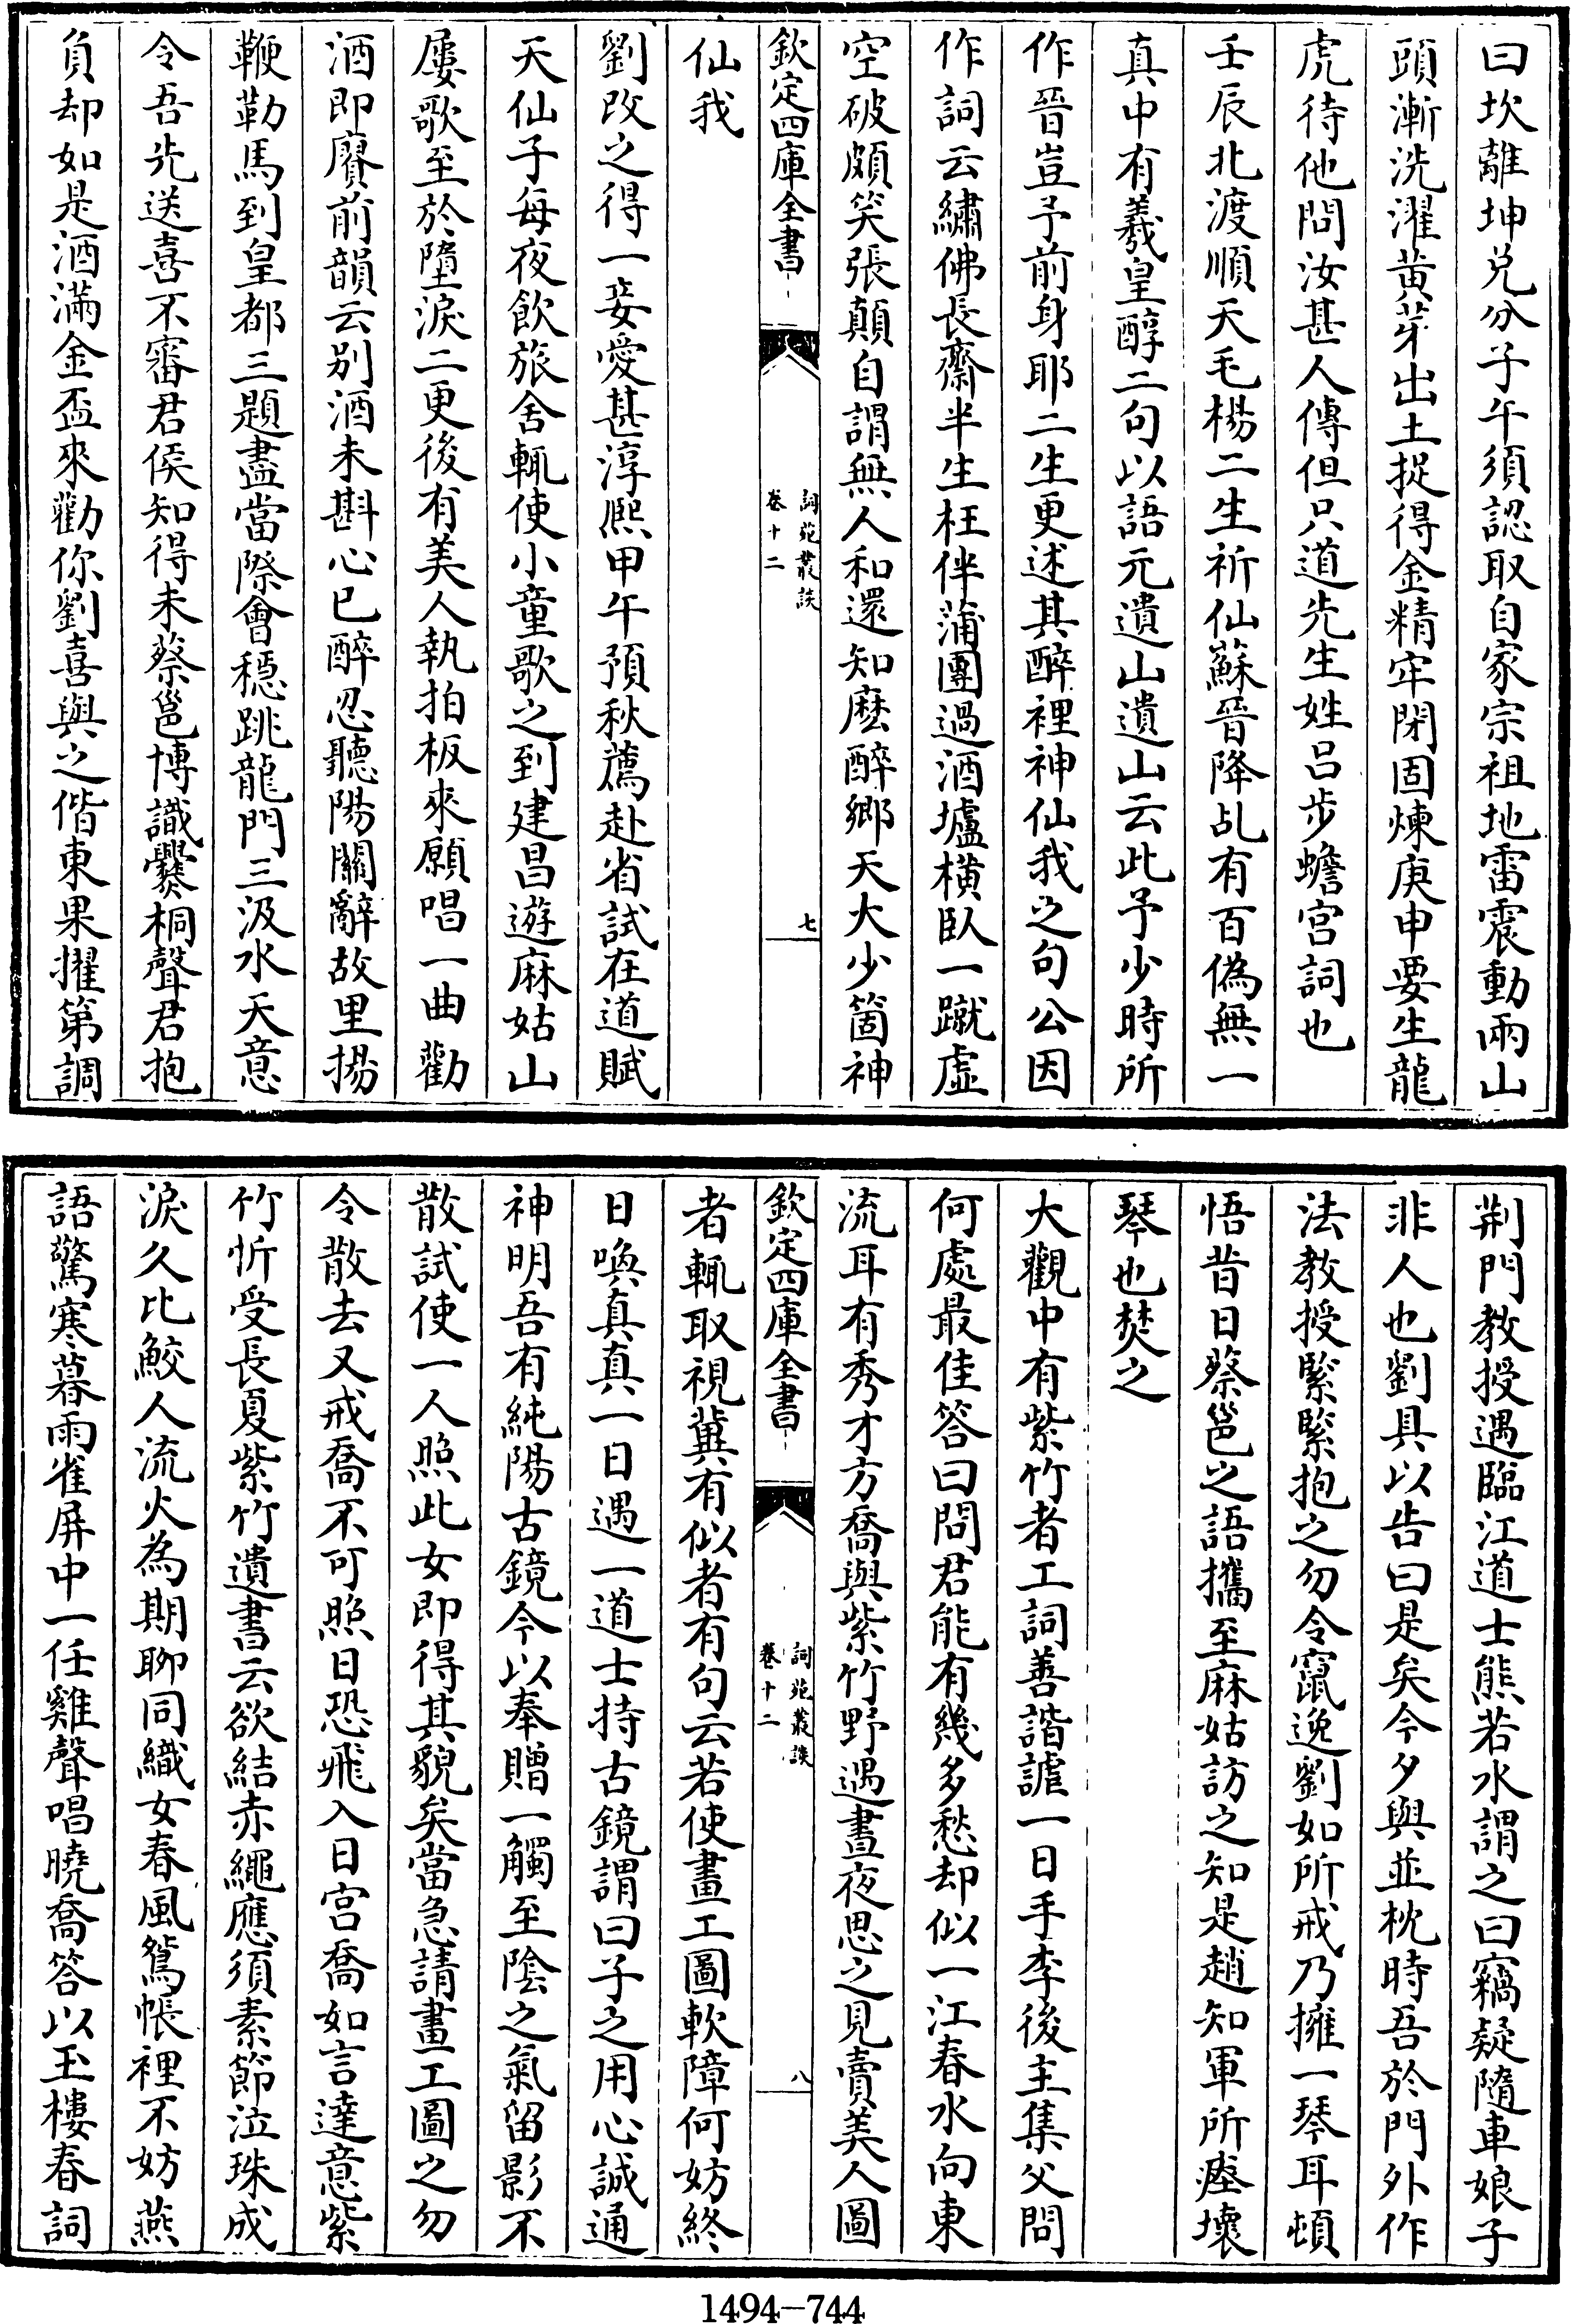 曰坎離坤兑分子午須認取自家宗祖地雷震動雨山
頭漸洗濯黄芽出土捉得金精牢閉固煉庚申要生龍
虎待他問汝甚人傳但只道先生姓吕步蟾宫詞也
壬辰北渡順天毛楊二生祈仙蘇晉降乩有百偽無一
真中有羲皇醇二句以語元遺山遺山云此予少時所
作晉豈予前身耶二生更述其醉裡神仙我之句公因
作詞云繡佛長齋半生枉伴蒲團過酒壚横臥一蹴虚
空破頗笑張顛自謂無人和還知麽醉鄉天大少箇神
欽定四庫全書
詞苑叢談
卷十二
七
仙我
劉改之得一妾愛甚淳熙甲午預秋薦赴省試在道賦
天仙子每夜飲旅舍輒使小童歌之到建昌遊麻姑山
屢歌至於墮淚二更後有美人執拍板來願唱一曲勸
酒即賡前韻云别酒未斟心已醉忍聽陽關辭故里揚
鞭勒馬到皇都三題盡當際會穩跳龍門三汲水天意
令吾先送喜不審君侯知得未蔡邕博識爨桐聲君抱
負却如是酒滿金盃來勸你劉喜與之偕東果擢第調
荆門教授遇臨江道士熊若水謂之曰竊疑隨車娘子
非人也劉具以告曰是矣今夕與並枕時吾於門外作
法教授緊緊抱之勿令竄逸劉如所戒乃擁一琴耳頓
悟昔日蔡邕之語攜至麻姑訪之知是趙知軍所瘞壞
琴也焚之
大觀中有紫竹者工詞善諧謔一日手李後主集父問
何處最佳答曰問君能有幾多愁却似一江春水向東
流耳有秀才方喬與紫竹野遇晝夜思之見賣美人圖
欽定四庫全書
詞苑叢談
卷十二
八
者輒取視冀有似者有句云若使畫工圖軟障何妨終
日喚真真一日遇一道士持古鏡謂曰子之用心誠通
神明吾有純陽古鏡今以奉贈一觸至陰之氣留影不
散試使一人照此女即得其貌矣當急請畫工圖之勿
令散去又戒喬不可照日恐飛入日宫喬如言達意紫
竹忻受長夏紫竹遺書云欲結赤繩應須素節泣珠成
淚久比鮫人流火為期聊同織女春風鴛帳裡不妨燕
語驚寒暮雨雀屏中一任雞聲唱曉喬答以玉樓春詞
1494—744